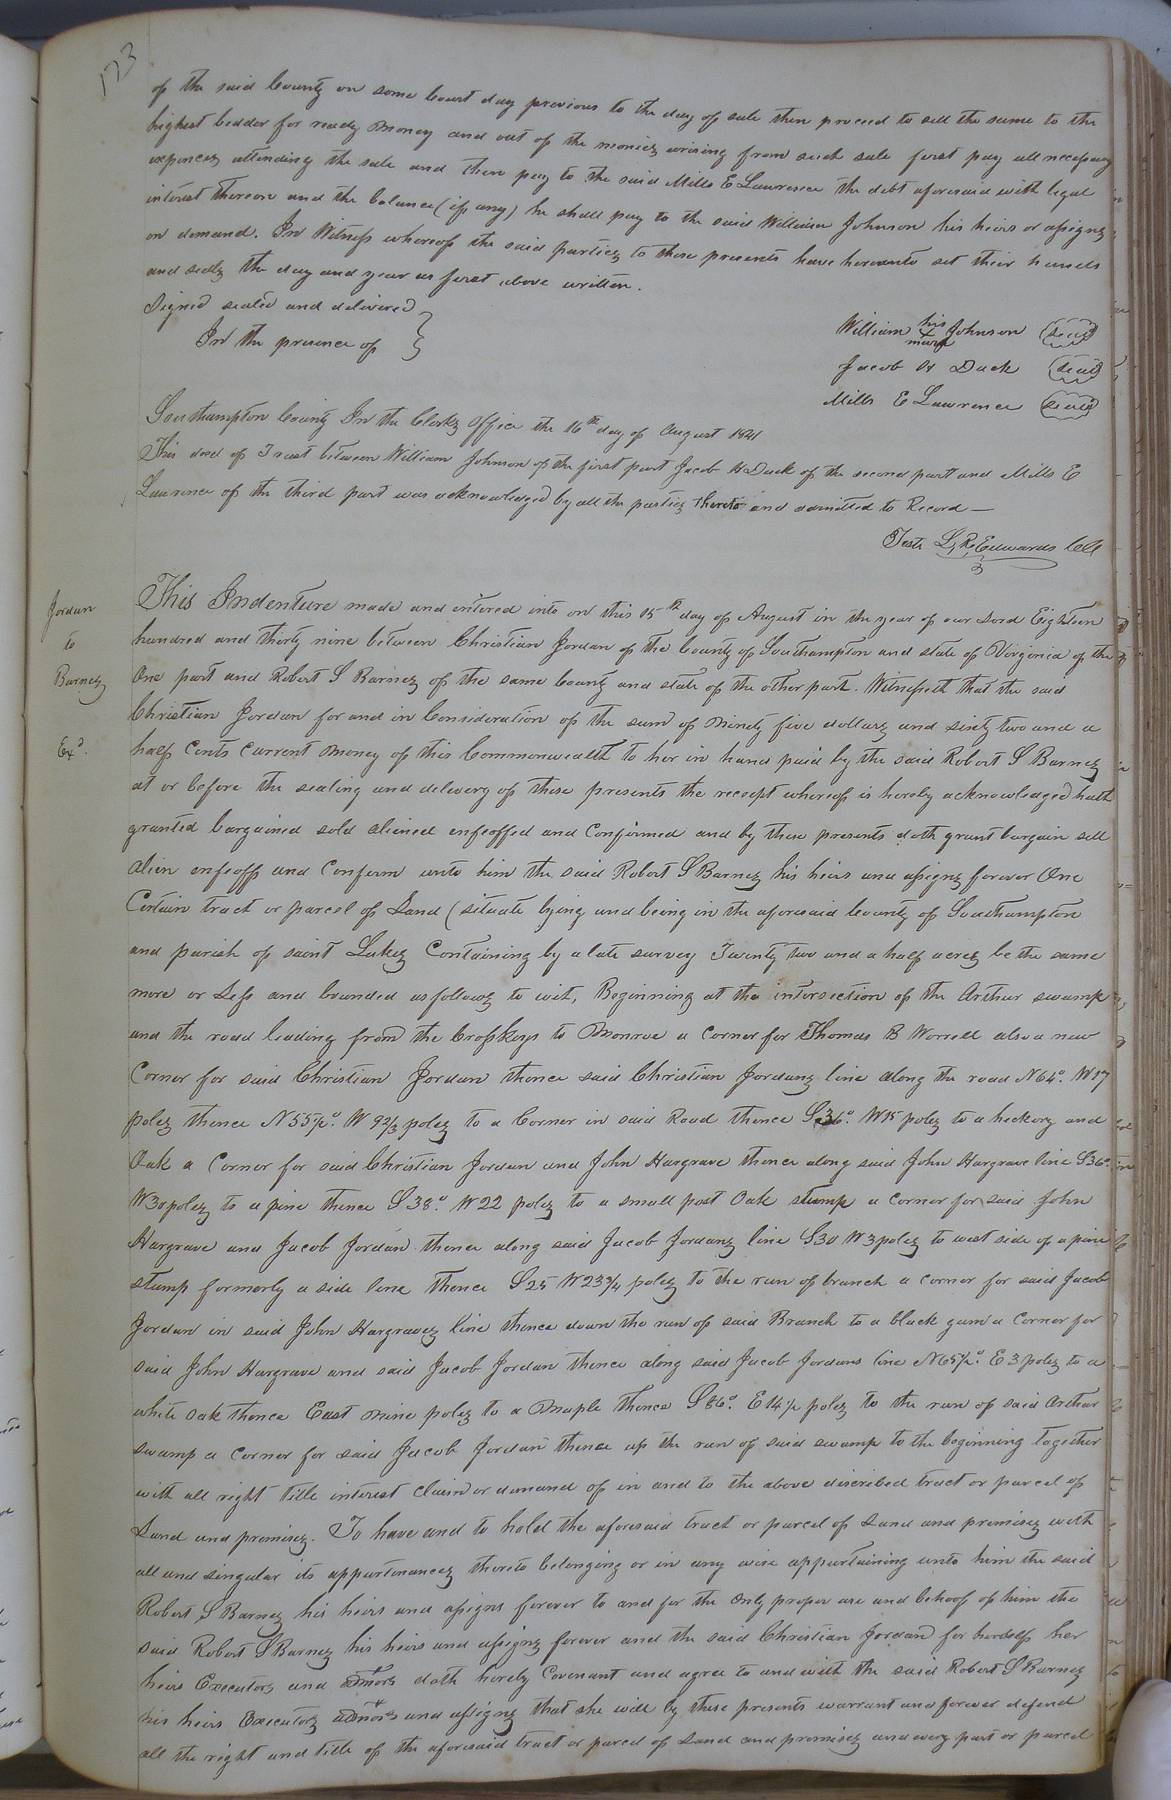 123
of the said County on some Court day previous to the day of sale then proceed to sell the same to the
highest bidder for ready money and out of the moniez arising from such sale first pay all necessary
expencez attending the sale and then pay to the said Mills E Lawrence the debt aforesaid with legal
interest thereon and the balance (if any) he shall pay to the said William Johnson his heirs or assignz
on demand. In Witness whereof the said partiez to these presents have hereunto set their hands
and sealz the day and year as first above written.
Signed sealed and delivered }
In the presence of }
William his Johnson Seal
+
mark
Jacob H Duck Seal
Mills E Lawrence Seal
Southampton County In the Clerkz Office the 16th day of August 1841
This deed of Trust between William Johnson of the first part Jacob H Duck of the second part and Mills E
Lawrence of the third part was acknowledged by all the partiez thereto and admitted to Record —
Teste L. R. Edwards CC
Jordan
to
Barnez
Exd.
This Indenture made and entered into on this 15th day of August in the year of our Lord Eighteen
hundred and thirty nine between Christian Jordan of the County of Southampton and state of Virginia of the
One part and Robert S Barnez of the same County and state of the other part. Witnesseth that the said
Christian Jordan for and in Consideration of the sum of Ninety five dollarz and sixty two and a
half Cents Current money of this Commonwealth to her in hand paid by the said Robert S Barnez
at or before the sealing and delivery of these presents the receipt whereof is hereby acknowledged hath
granted bargained sold aliened enfeoffed and Confirmed and by these presents doth grant bargain sell
alien enfeoff and Confirm unto him the said Robert S Barnez his heirs and assignz forever One
Certain tract or parcel of Land (situate lying and being in the aforesaid County of Southampton
and parish of saint Lukez Containing by a late survey Twenty two and a half acrez be the same
more or Less and bounded as followz to wit, Beginning at the intersection of the Arthur swamp
and the road leading from the Crosskeys to Monroe a Corner for Thomas B Worrell also a new
Corner for said Christian Jordan thence said Christian Jordanz line along the road N64°. W17
polez thence N55½°. W 92/3 polez to a Corner in said Road thence S36° W15 polez to a hickory and
Oak a Corner for said Christian Jordan and John Hargrave thence along said John Hargrave line S36°.
W30 polez to a pine thence S38° W22 polez to a small post Oak stump a Corner for said John
Hargrave and Jacob Jordan thence along said Jacob Jordanz line S30 W3 polez to west side of a pine
stump formerly a side line thence S25 W23¾ polez to the run of branch a corner for said Jacob
Jordan in said John Hargravez line thence down the run of said Branch to a black gum a Corner for
said John Hargrave and said Jacob Jordan thence along said Jacob Jordans line N65½°. E3 polez to a
white oak thence East nine polez to a Maple thence S86°. E14½ polez to the run of said Arthur
swamp a Corner for said Jacob Jordan thence up the run of said swamp to the beginning together
with all right title interest Claim or demand of in and to the above discribed tract or parcel of
Land and premisez. To have and to hold the aforesaid tract or parcel of Land and premisez with
all and singular its appurtenancez thereto belonging or in any wise appurtaining unto him the said
Robert S Barnez his heirs and assigns forever to and for the Only proper use and behoof of him the
said Robert S Barnez his heirs and assignz forever and the said Christian Jordan for herself her
heirs Executorz and admors doth hereby Covenant and agree to and with the said Robert S Barnez
his heirs Executorz admors and assignz that she will by these presents warrant and forever defend
all the right and title of the aforesaid tract or parcel of Land and premisez and every part or parcel